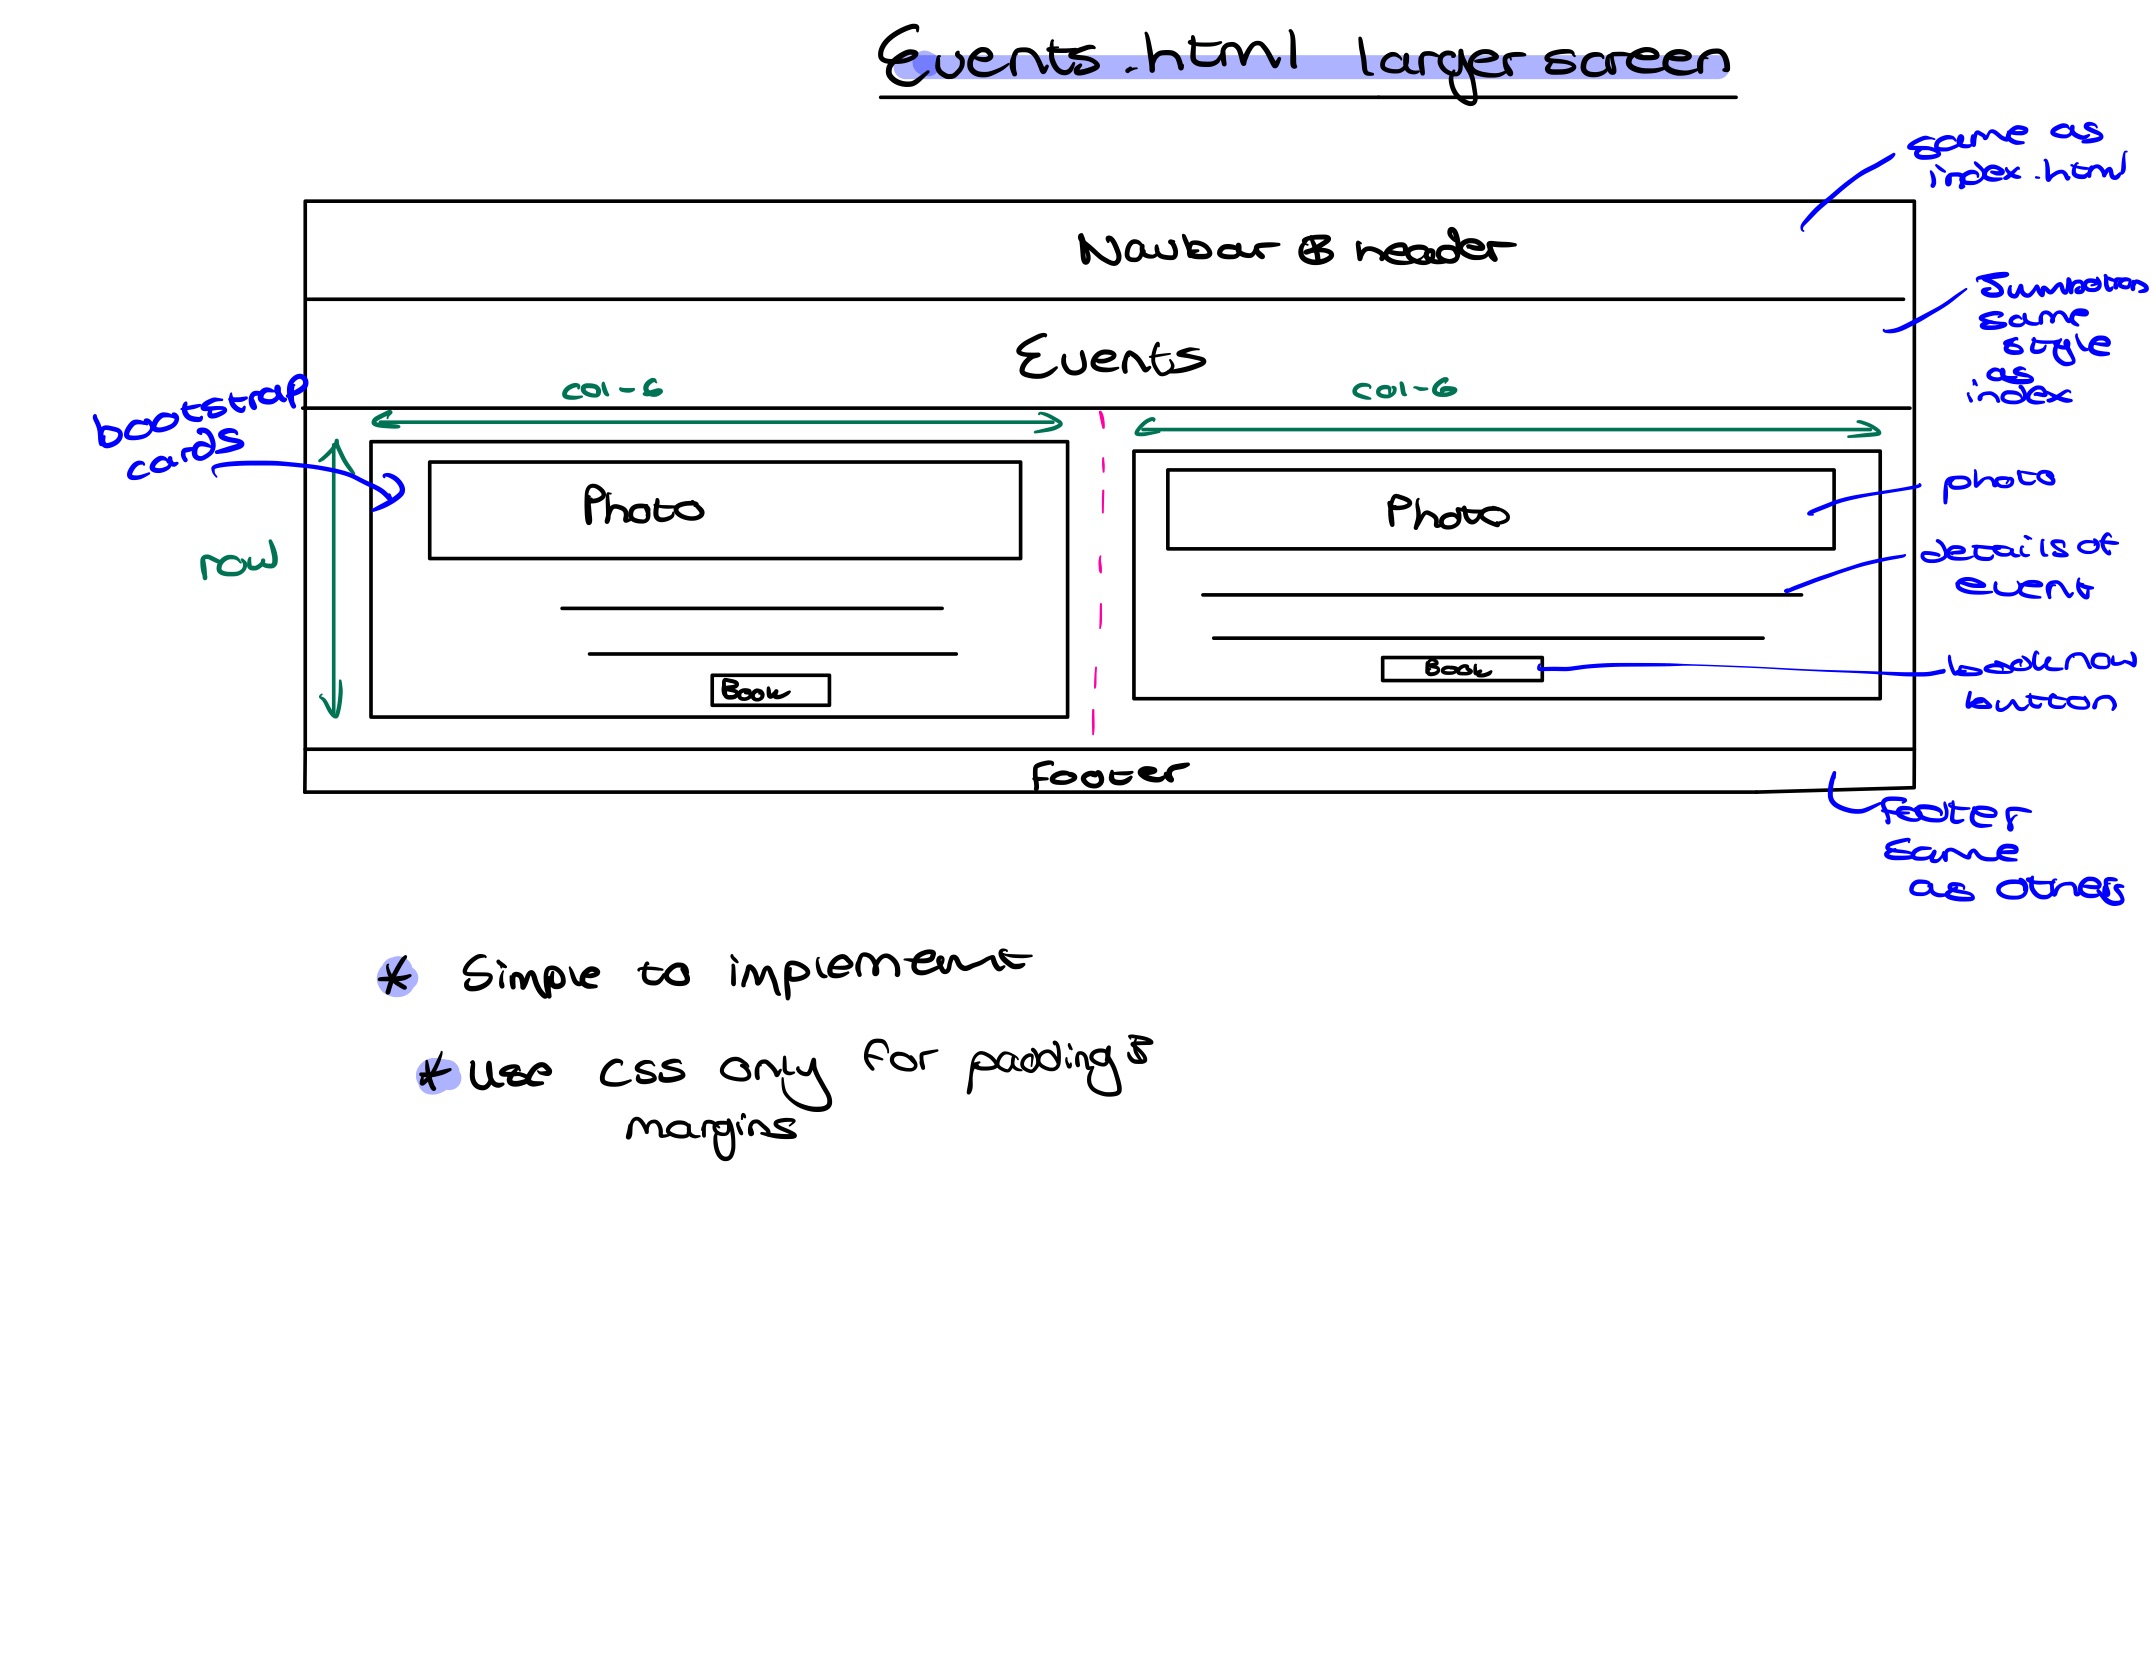 Events.html larger screen
same as
index.html
Navbar & header
Jumbotron
same
style
as
index
Events
col-6
col-6
bootstrap
cards
row
Photo
Photo
photo
details of
event
Book
Book
book now
button
Footer
footer
same
as others
* Simple to implement
* Use css only for padding &
margins